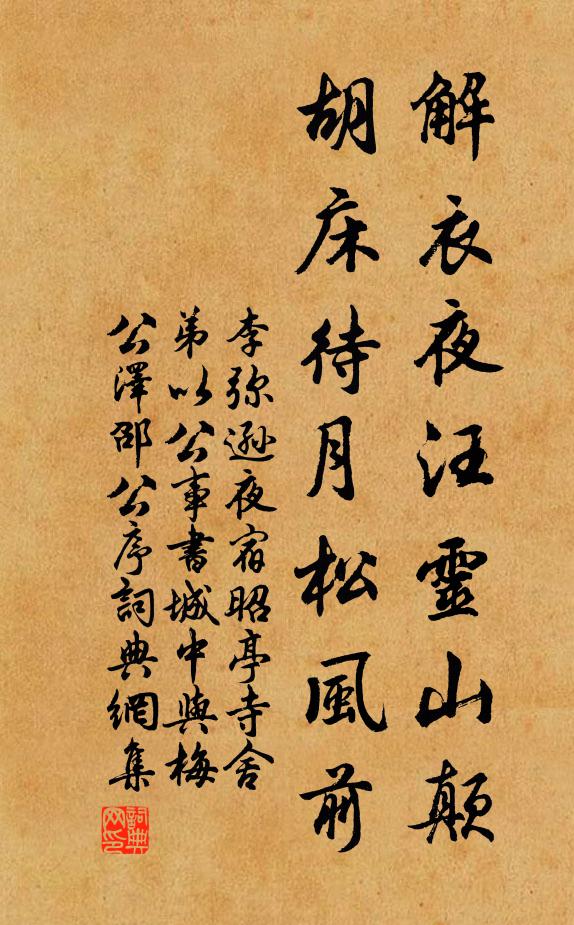 解衣夜汪靈山顛
胡床待月松風前
李弥遜夜宿昭亭寺舍
弟以公事書城中與梅
公澤邵公序詞典網集
詞典
网印